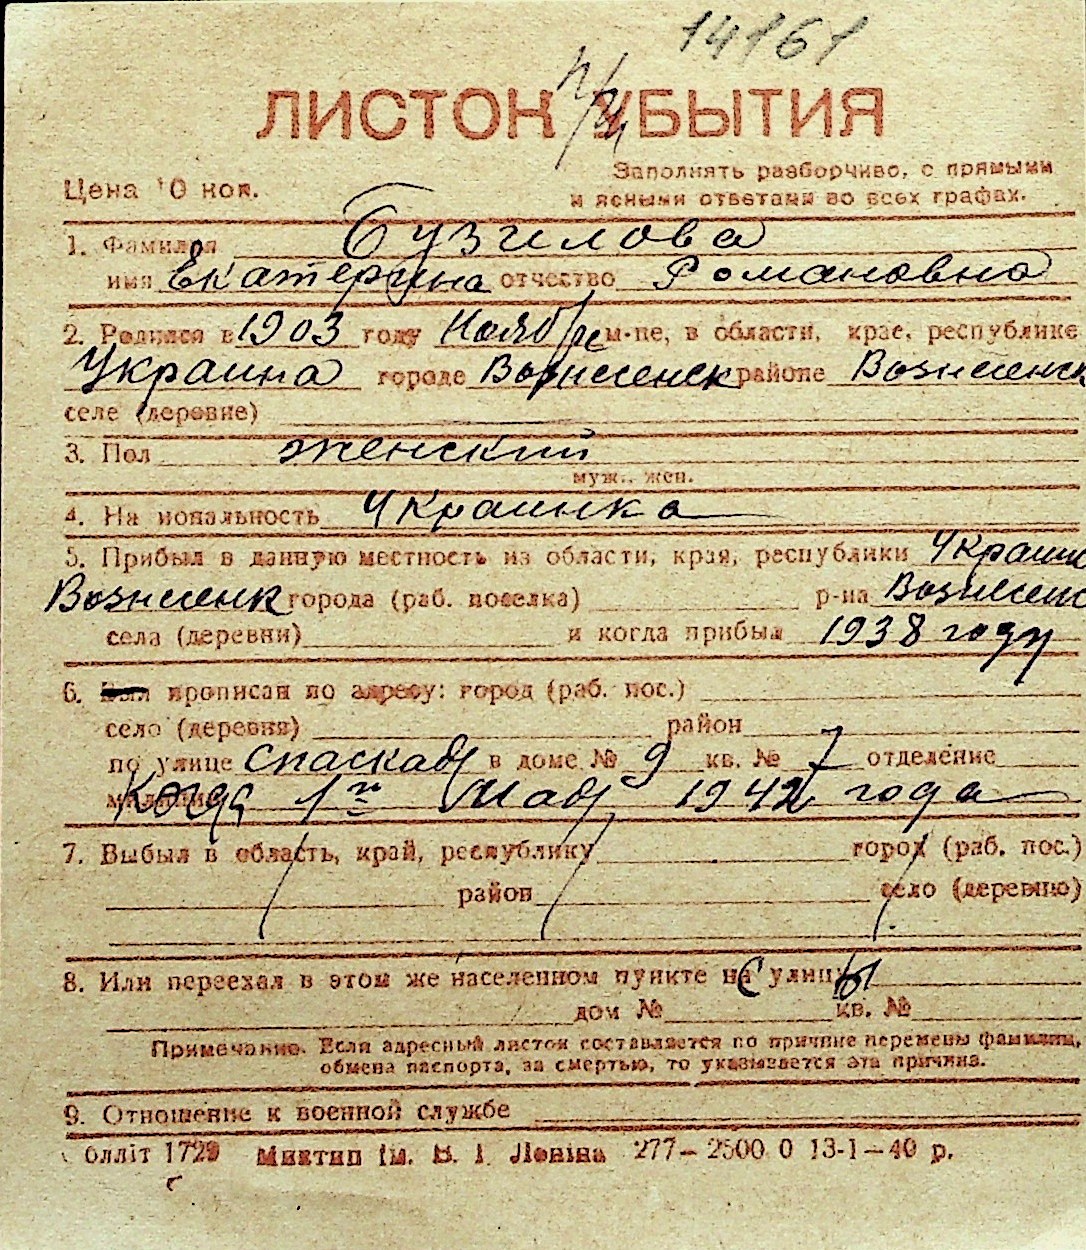 14161
ЛИСТОК УБЫТИЯ
Цена 10 коп.
Заполнять разборчиво, с прямыми
и ясными ответами во всех графах.
1. Фамилия Бузилова
имя Екатерина отчество Романовна
2. Родился в 1903 году Ноябре м-це, в области, крае, республике
Украина городе Вознесенск районе Вознесенск
селе (деревне)
3. Пол женский
муж., жен.
4. На иональность Украинка
5. Прибыл в данную местность из области, края, республики Украин
Вознесенк города (раб. поселка) р-на Вознесенс
села (деревни) и когда прибыл 1938 году
6. Был прописан по адресу: город (раб. пос.)
село (деревня) район
по улице Спаская в доме № 9 кв. № 7 отделение
милиции Когда 1го Мая 1942 года
7. Выбыл в область, край, республику город (раб. пос.)
район село (деревню)
8. Или переехал в этом же населенном пункте на с улицы
дом № кв. №
Примечание. Если адресный листок составляется по причине перемены фамилии,
обмена паспорта, за смертью, то указывается эта причина.
9. Отношение к военной службе
олліт 1729 Миктип ім. В. І. Леніна 277–2500 0 13-1–40 р.